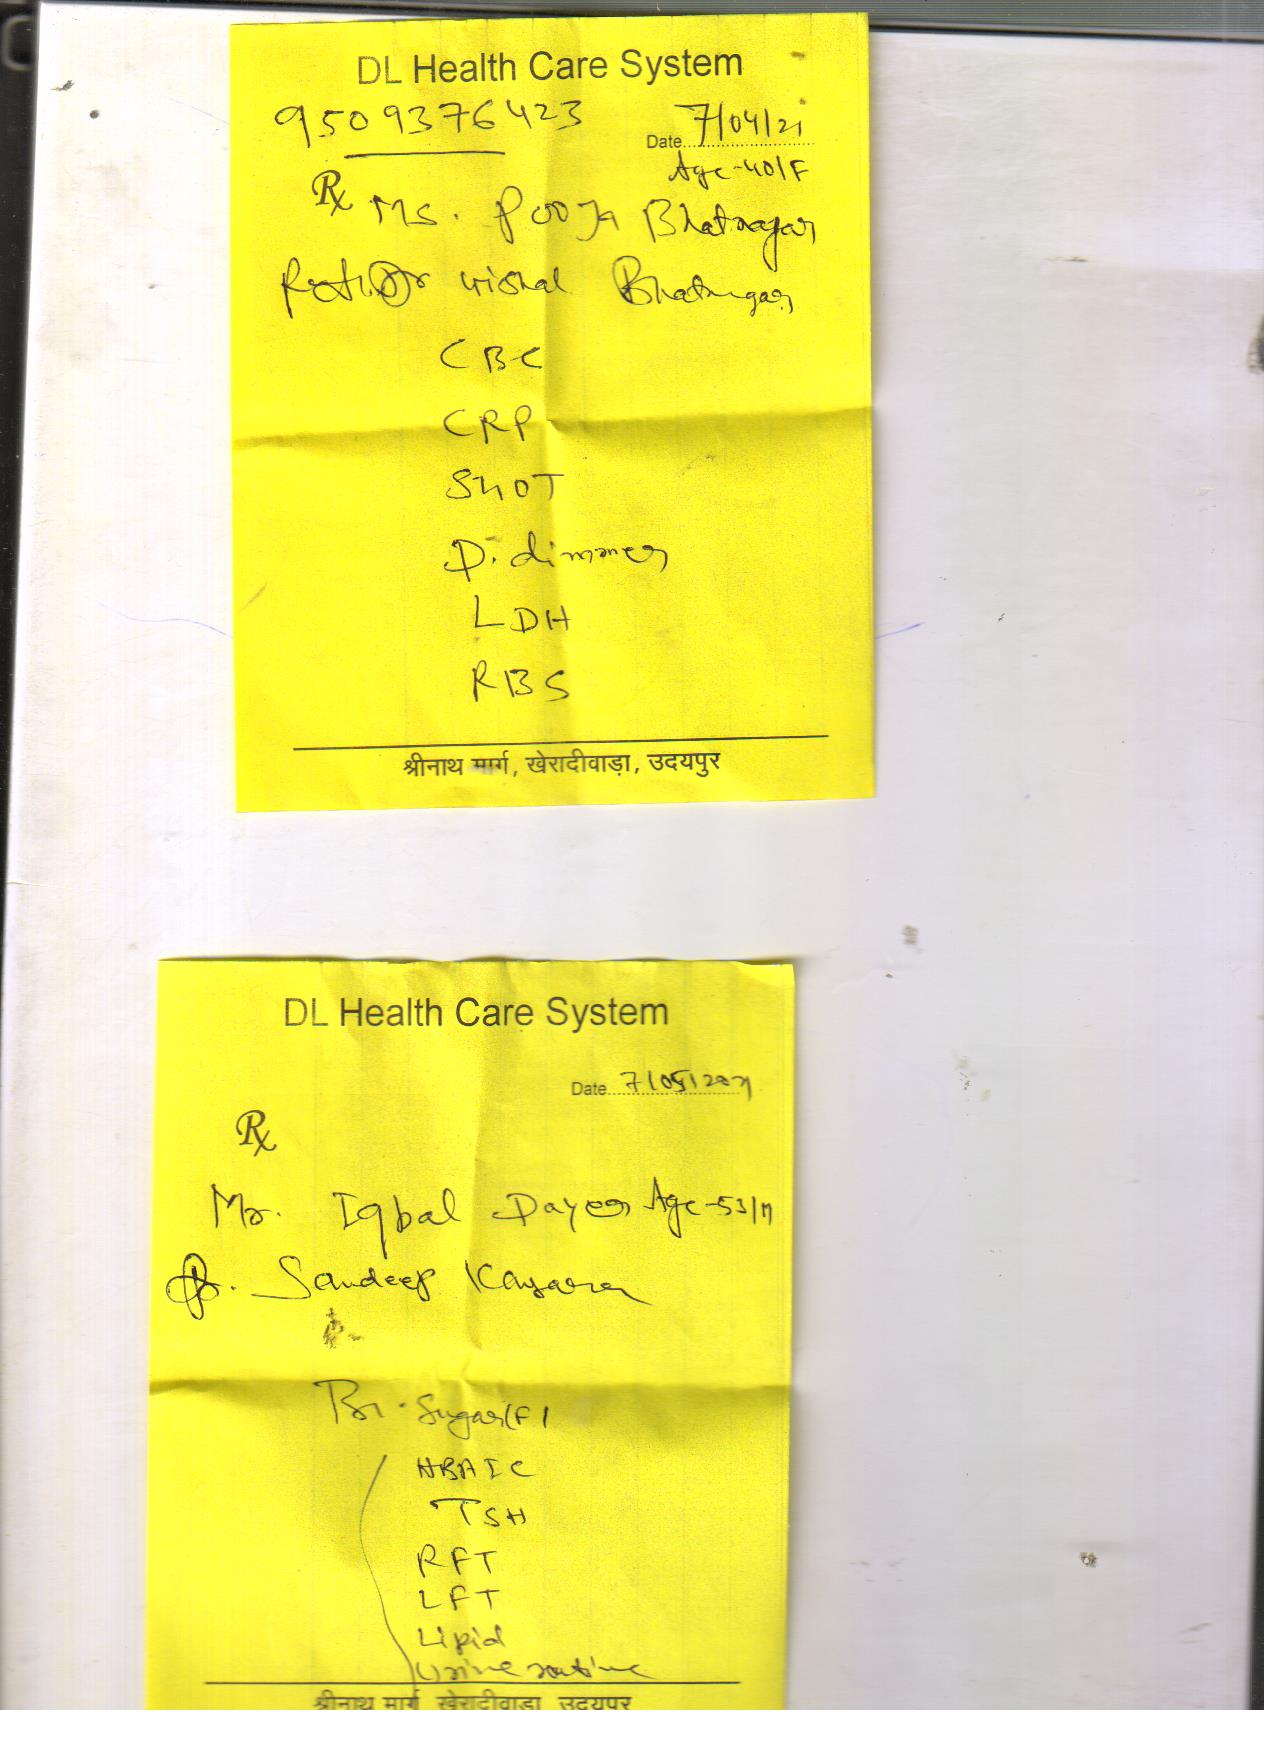 DL Health Care System
9509376423
Date 7/04/21
Age-40/F
Rx Ms. Pooja Bhatnagar
vishal Bhatnagar
CBC
CRP
SGOT
D.dimmer
LDH
RBS
श्रीनाथ मार्ग, खेरादीवाड़ा, उदयपुर
DL Health Care System
Date 7/05/2021
Rx
Mr. Iqbal Dayer Age-53/M
Sandeep
Bl. Sugar (F)
HBA1C
TSH
RFT
LFT
Lipid
Urine routine
श्रीनाथ मार्ग, खेरादीवाड़ा, उदयपुर